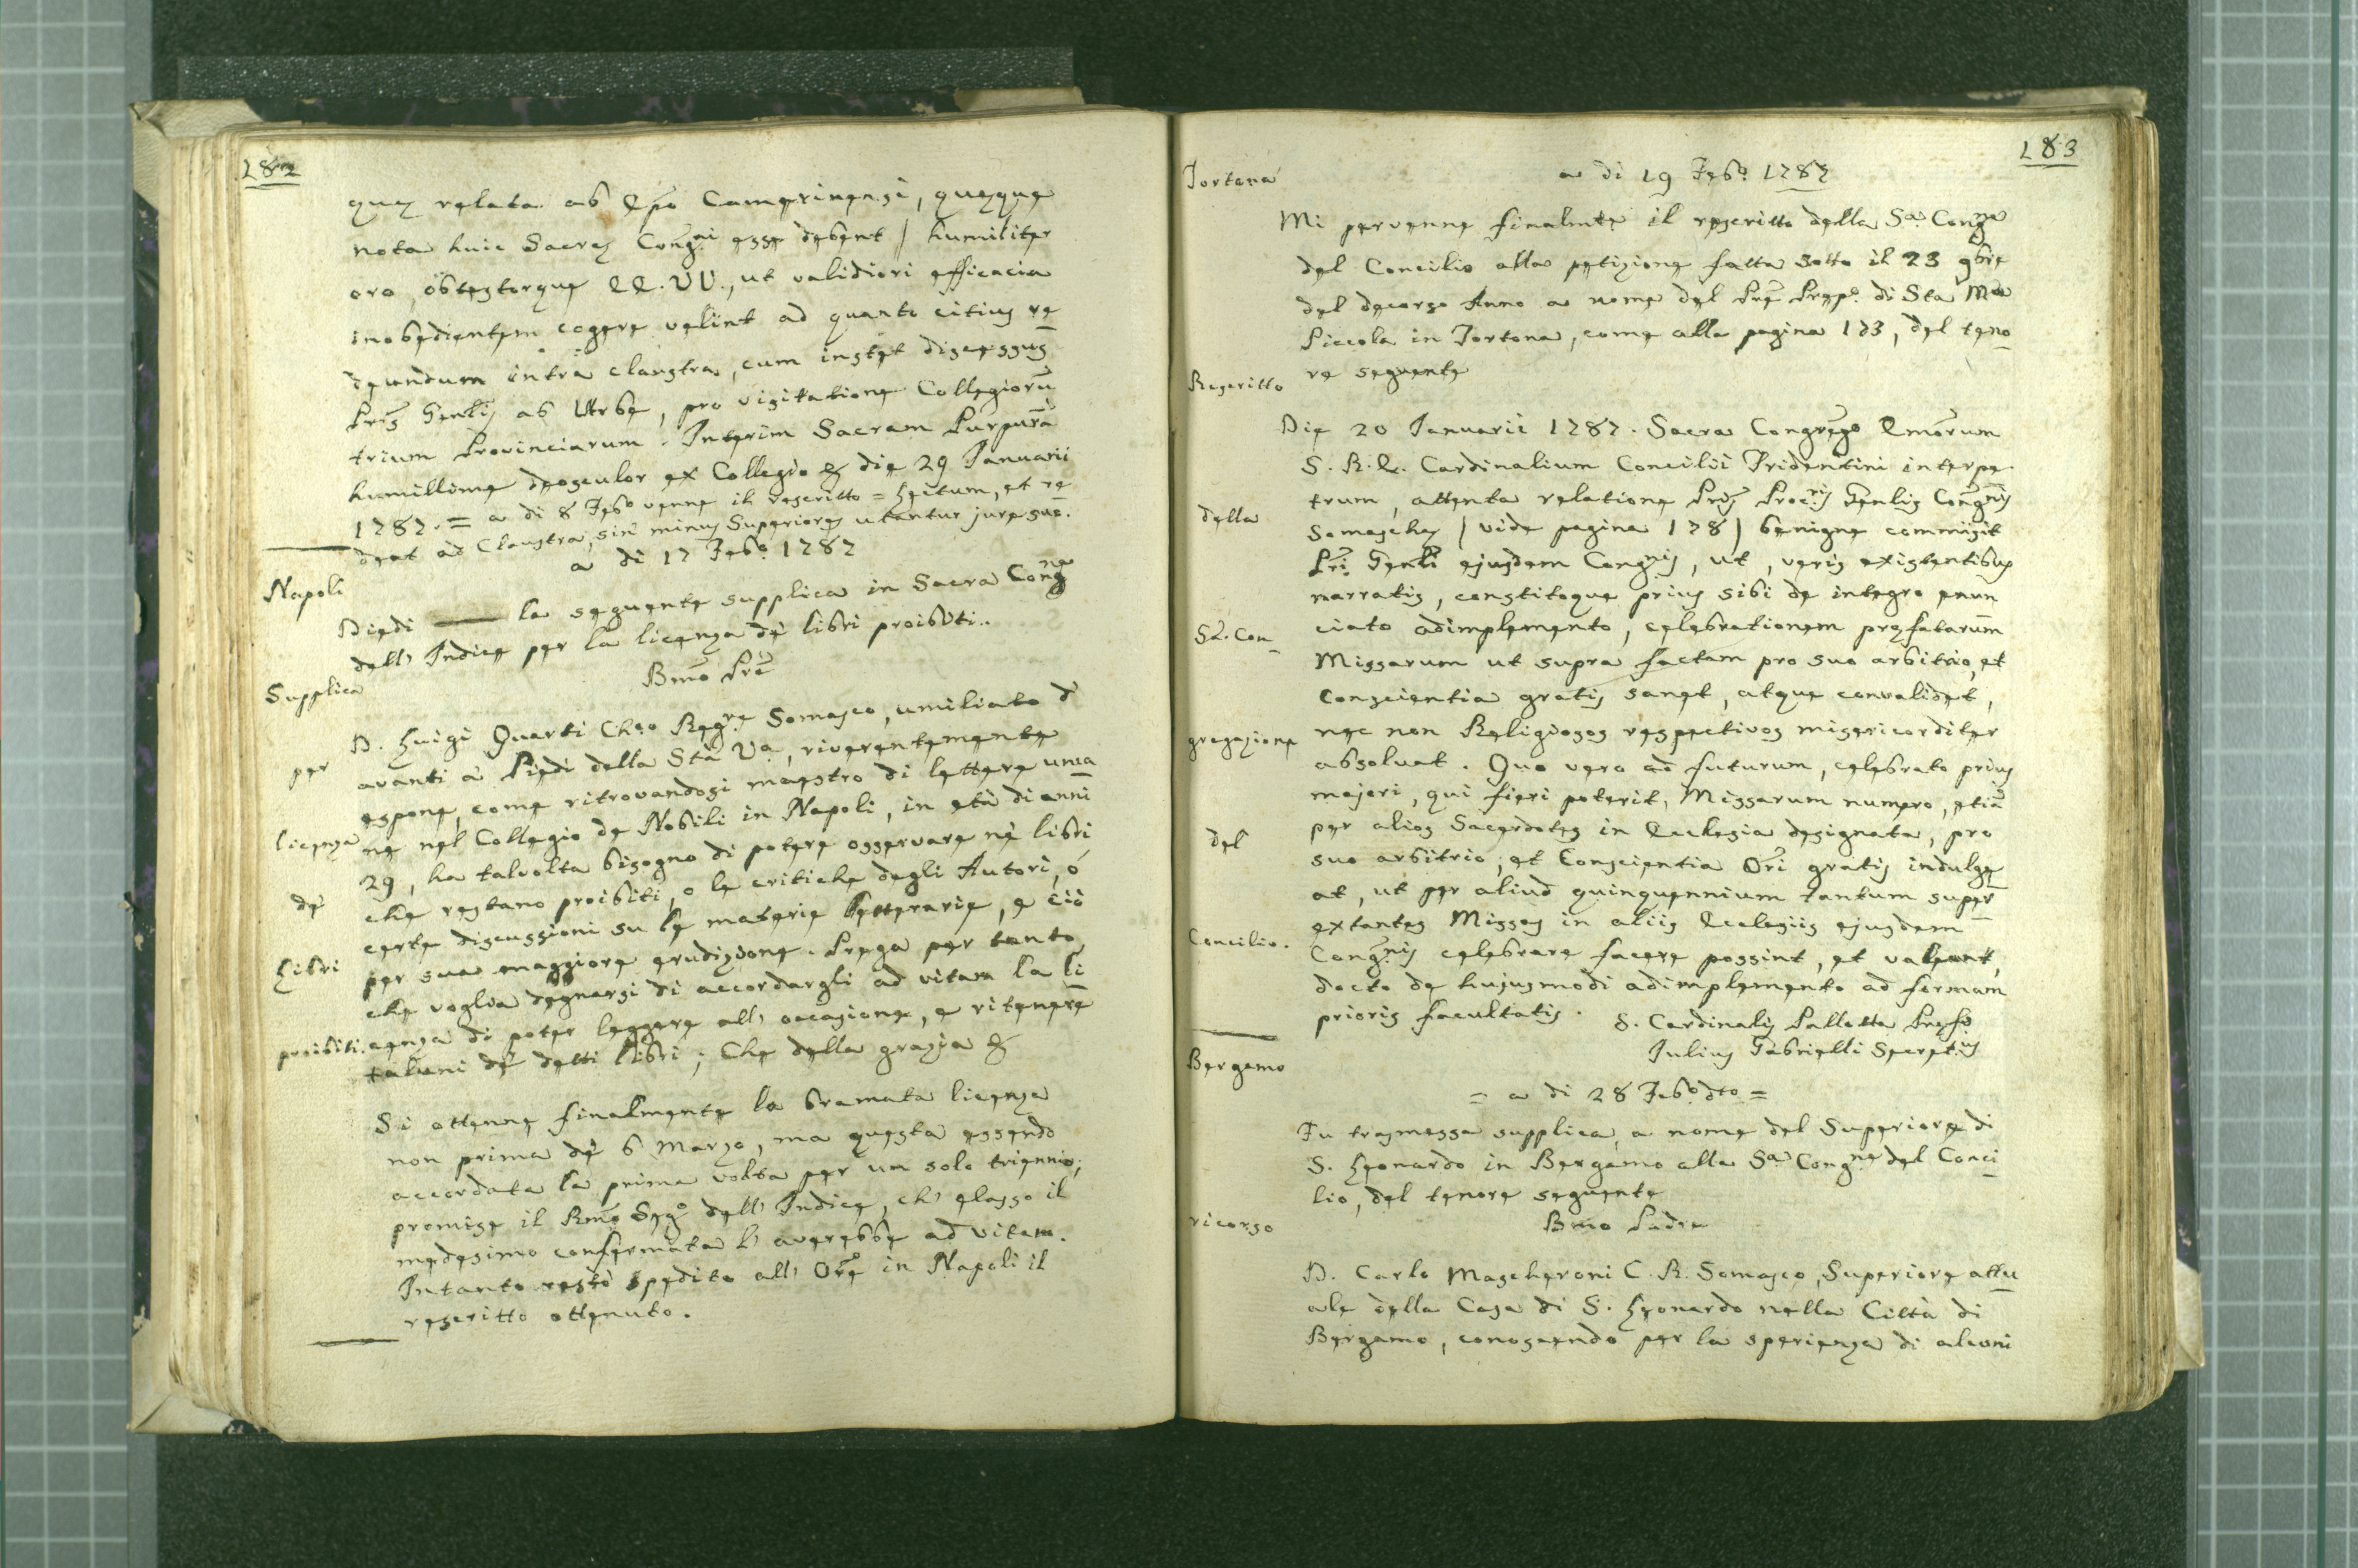 182
quæ relata ab Epo Camerinensi, quæque
nota huic Sacræ Congni esse debent / humiliter
oro, obtestorque EE.VV., ut validiori efficacia
inobedientem cogere velint ad quanto citius re
deundum intra claustra, cum instet discessus
Pris Genlis ab Urbe, pro visitatione Collegioru
trium Provinciarum. Interim Sacram Purpura
humillime deosculor ex Collegio & die 29 Januarii
1787. = a di 8 Febo venne il rescritto = Lectum, et re
deat ad Claustra, sin minus Superiores utantur jure suo.
a di 17 Febo 1787
Napoli
Diedi la seguente supplica in Sacra Congne
dell' Indice per la licenza de' libri proibiti..
Bmo Pre
Supplica
D. Luigi Quarti Chco Regre Somasco, umiliato d'
avanti a' Piedi della Sta Va, riverentemente
per
espone, come ritrovandosi maestro di lettere uma
ne nel Collegio de Nobili in Napoli, in età di anni
licenza
29, ha talvolta bisogno di potere osservare ne' libri
che restano proibiti, o le critiche degli Autori, ó
de'
certe discussioni su le materie letterarie, e ciò
per sua maggiore erudizione. Prega per tanto,
Libri
che voglia degnarsi di accordargli ad vitam la li
proibiti. cenza di poter leggere all' occasione, e ritenere
taluni de' detti libri; Che della grazia &
Si ottenne finalmente la bramata licenza
non prima de' 6 Marzo, ma questa essendo
accordata la prima volta per un solo triennio,
promise il Rmo Sego dell' Indice, ch' elasso il
medesimo confermata l' averebbe ad vitam.
Intanto restò spedito all' Ore in Napoli il
rescritto ottenuto.
183
Tortona
a di 19 Febo 1787
Mi pervenne finalmte il rescritto della Sa Congne
del Concilio alla petizione fatta sotto il 23 9bre
del decorso Anno a nome del Pre Prepo di Sta Ma
Piccola in Tortona, come alla pagina 173, del teno
re seguente
Rescritto
Die 20 Januarii 1787. Sacra Congrego Emorum
S. R. E. Cardinalium Concilii Tridentini interpe
trum, attenta relatione Pris Procris Genlis Congnis
della
Somaschæ / vide pagina 178 / benigne commisit
Pri Genli ejusdem Congnis, ut, veris existentibus
narratis, constitoque prius sibi de integro enun
Sa. Con
ciato adimplemento, celebrationem præfatarum
Missarum ut supra factam pro suo arbitrio, et
Conscientia gratis sanet, atque convalidet,
gregazione
nec non Religiosos respectivos misericorditer
absolvat. Quo vero ad futurum, celebrato prius
majori, qui fieri poterit, Missarum numero, etia
del
per alios Sacerdotes in Ecclesia designata, pro
suo arbitrio, et Conscientia Ori gratis indulge
at, ut per aliud quinquennium tantum super
extantes Missas in aliis Ecclesiis ejusdem
Concilio.
Congnis celebrare facere possint, et valeant,
docto de hujusmodi adimplemento ad formam
prioris facultatis.
G. Cardinalis Pallotta Præfs
Julius Gabrielli Secretius
Bergamo
= a di 28 Febo dto =
Fu trasmessa supplica a nome del Superiore di
S. Leonardo in Bergamo alla Sa Congne del Conci
lio, del tenore seguente
ricorso
Bmo Padre
D. Carlo Mascheroni C. R. Somasco, Superiore attu
ale della Casa di S. Leonardo nella Città di
Bergamo, conoscendo per la sperienza di alcuni